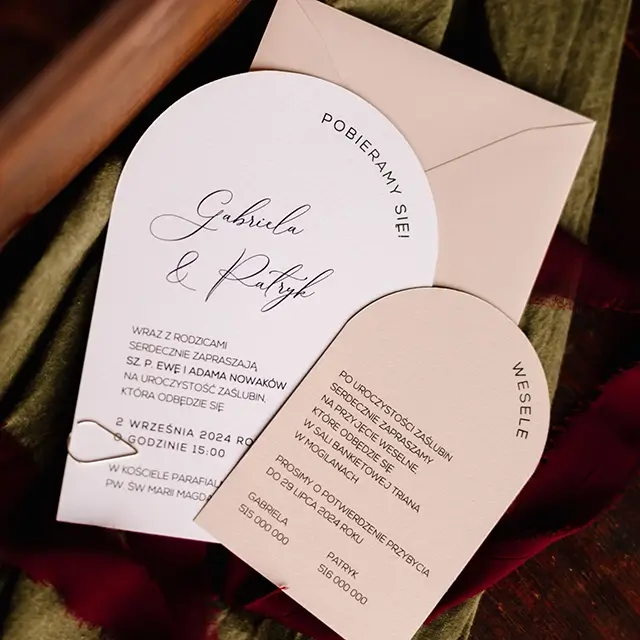 POBIERAMY SIĘ!
Gabriela
& Patryk
WRAZ Z RODZICAMI
SERDECZNIE ZAPRASZAJĄ
SZ. P. EWĘ I ADAMA NOWAKÓW
NA UROCZYSTOŚĆ ZAŚLUBIN.
KTÓRA ODBĘDZIE SIĘ
2 WRZEŚNIA 2024 RO
O GODZINIE 15:00
W KOŚCIELE PARAFIAL
PW. ŚW MARII MAGDA
WESELE
PO UROCZYSTOŚCI ZAŚLUBIN
SERDECZNIE ZAPRASZAMY
NA PRZYJĘCIE WESELNE.
KTÓRE ODBĘDZIE SIĘ
W SALI BANKIETOWEJ TRIANA
W MOGILANACH
PROSIMY O POTWIERDZENIE PRZYBYCIA
DO 29 LIPCA 2024 ROKU
GABRIELA
515 000 000
PATRYK
516 000 000